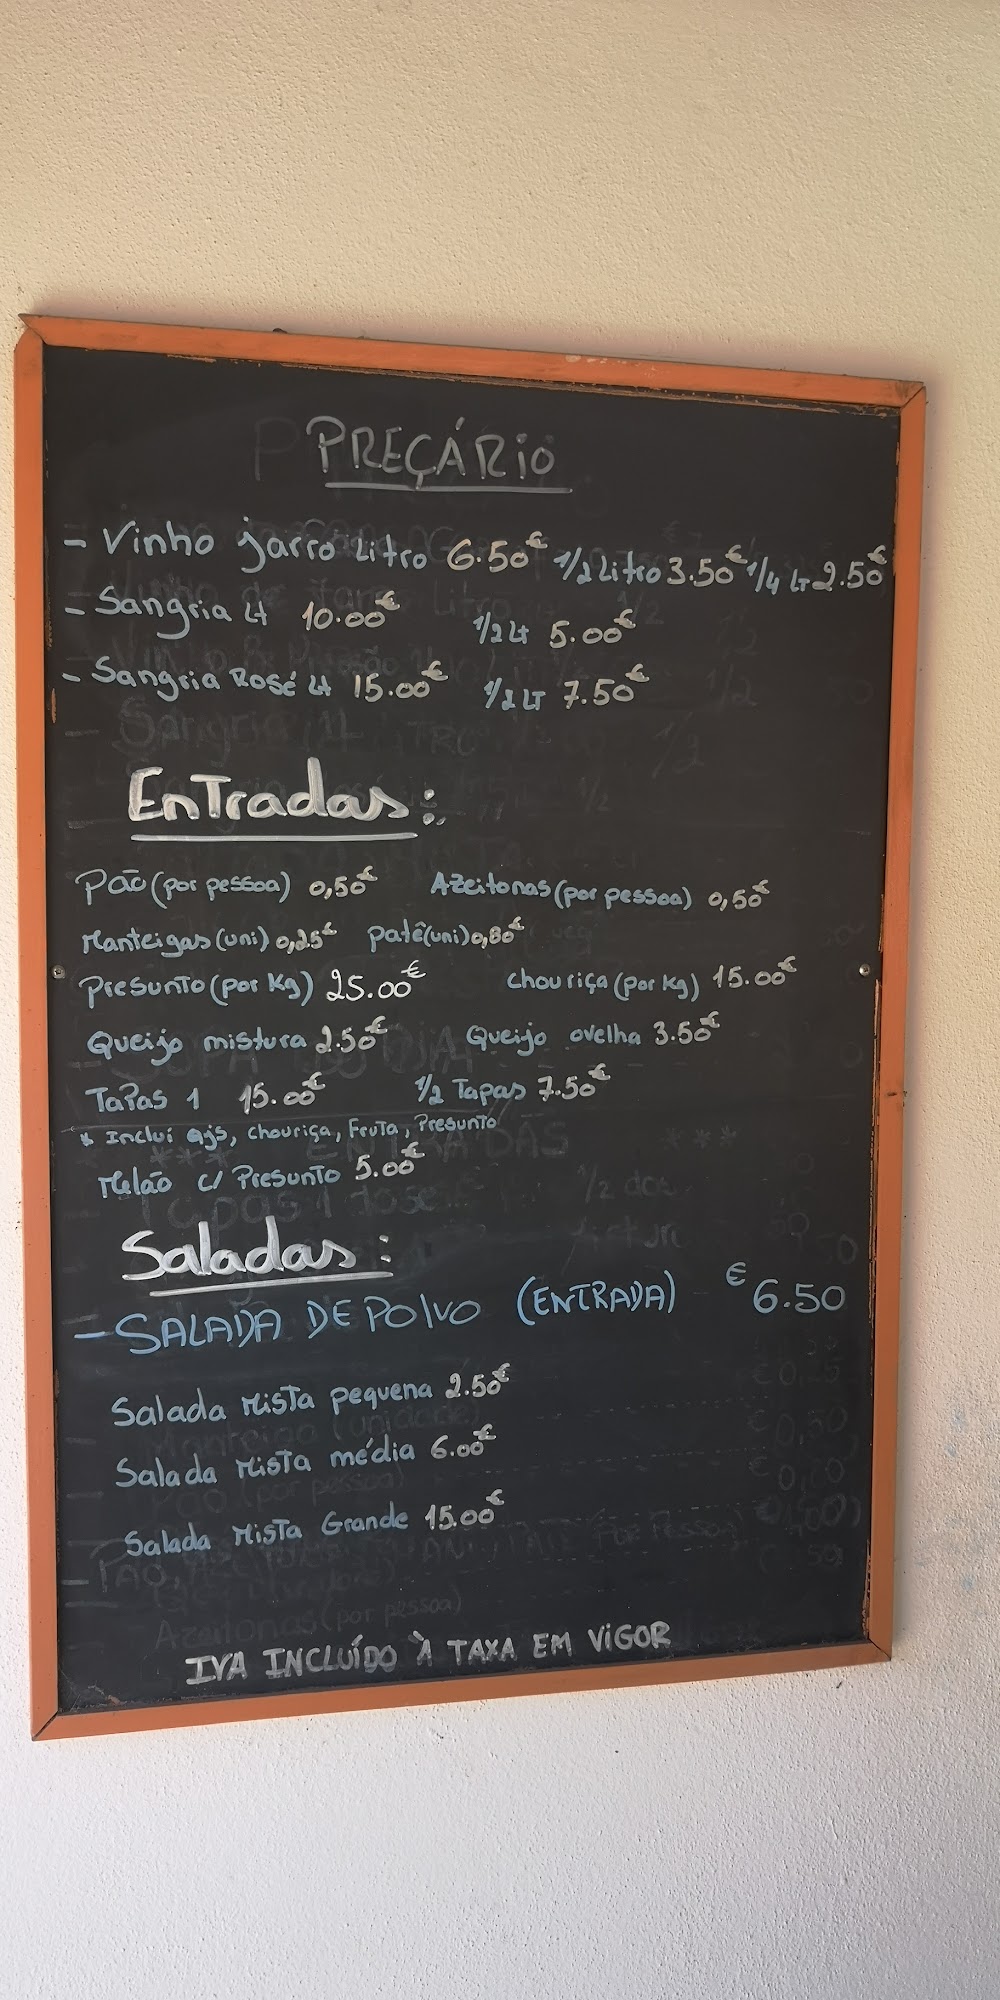 PREÇÁRIO
- Vinho jarro Litro 6.50€ 1/2 Litro 3.50€ 1/4 LT 2.50€
- Sangria Lt 10.00€ 1/2 Lt 5.00€
- Sangria Rosé Lt 15.00€ 1/2 LT 7.50€
Entradas:
Pão (por pessoa) 0,50€ Azeitonas (por pessoa) 0,50€
Manteigas (uni) 0,25€ patê (uni) 0,80€
Presunto (por Kg) 25.00€ Chouriça (por Kg) 15.00€
Queijo mistura 2.50€ Queijo ovelha 3.50€
Tapas 1 15.00€ 1/2 Tapas 7.50€
* Incluí qjs, chouriça, Fruta, Presunto
Melão c/ Presunto 5.00€
Saladas:
- SALADA DE POlVO (ENTRADA) €6.50
Salada Mista pequena 2.50€
Salada Mista média 6.00€
Salada Mista Grande 15.00€
IVA INCLUÍDO À TAXA EM VIGOR